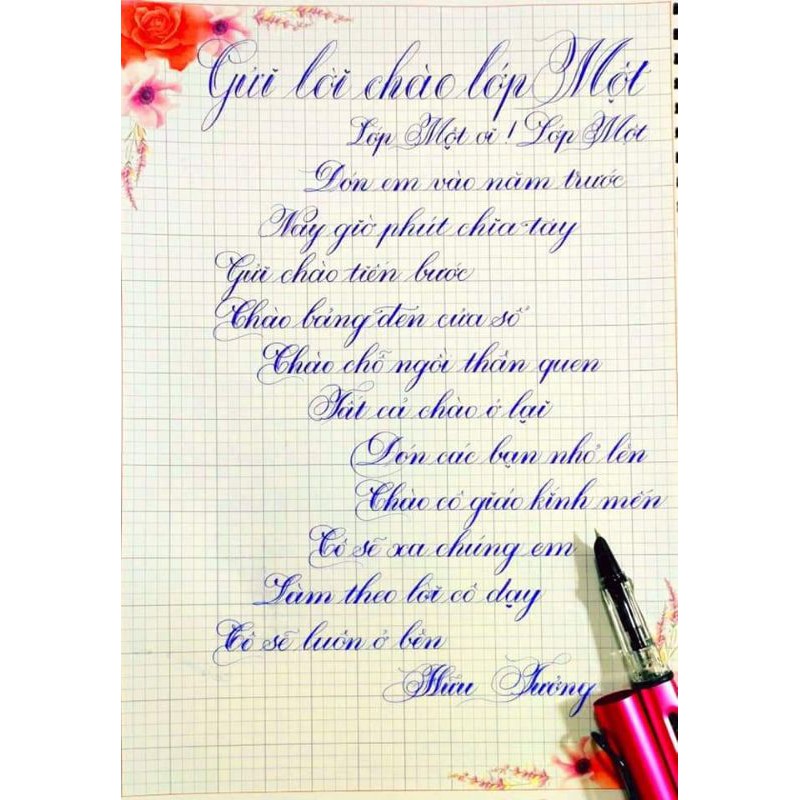 Gửi lời chào lớp Một
Lớp Một ơi ! Lớp Một
Đón em vào năm trước
Nay giờ phút chia tay
Gửi chào tiến bước
Chào bảng đen cửa sổ
Chào chỗ ngồi thân quen
Tất cả chào ở lại
Đón các bạn nhỏ lên
Chào cô giáo kính mến
Cô sẽ xa chúng em
Làm theo lời cô dạy
Cô sẽ luôn ở bên
Hữu Tưởng